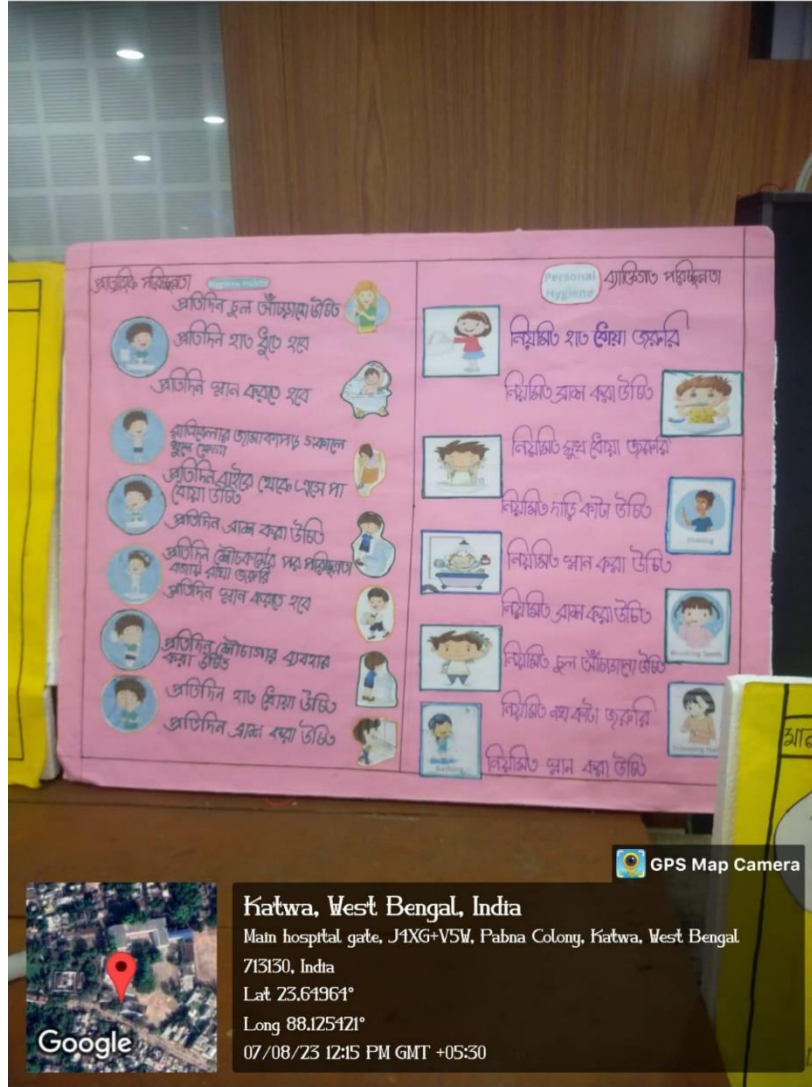 প্রাত্যহিক পরিচ্ছন্নতা
Hygiene Habits
প্রতিদিন চুল আঁচড়ানো উচিত
প্রতিদিন হাত ধুতে হবে
প্রতিদিন স্নান করতে হবে
রাত্রিবেলার জামাকাপড় সকালে
খুলে ফেলা
প্রতিদিন বাইরে থেকে এসে পা
ধোয়া উচিত
প্রতিদিন ব্রাশ করা উচিত
প্রতিদিন শৌচকর্মের পর পরিচ্ছন্নতা
বজায় রাখা জরুরি
প্রতিদিন স্নান করতে হবে
প্রতিদিন শৌচাগার ব্যবহার
করা উচিত
প্রতিদিন হাত ধোয়া উচিত
প্রতিদিন ব্রাশ করা উচিত
Personal
Hygiene
ব্যাক্তিগত পরিচ্ছন্নতা
নিয়মিত হাত ধোয়া জরুরি
নিয়মিত ব্রাশ করা উচিত
নিয়মিত মুখ ধোয়া জরুরি
নিয়মিত দাড়ি কাটা উচিত
Shaving
নিয়মিত স্নান করা উচিত
নিয়মিত ব্রাশ করা উচিত
Brushing Teeth
নিয়মিত চুল আঁচড়ানো উচিত
নিয়মিত নখ কাটা জরুরি
Trimming Nails
নিয়মিত স্নান করা উচিত
Bathing
GPS Map Camera
Katwa, West Bengal, India
Main hospital gate, J4XG+V5W, Pabna Colony, Katwa, West Bengal
713130, India
Lat 23.64964°
Long 88.125421°
07/08/23 12:15 PM GMT +05:30
Google